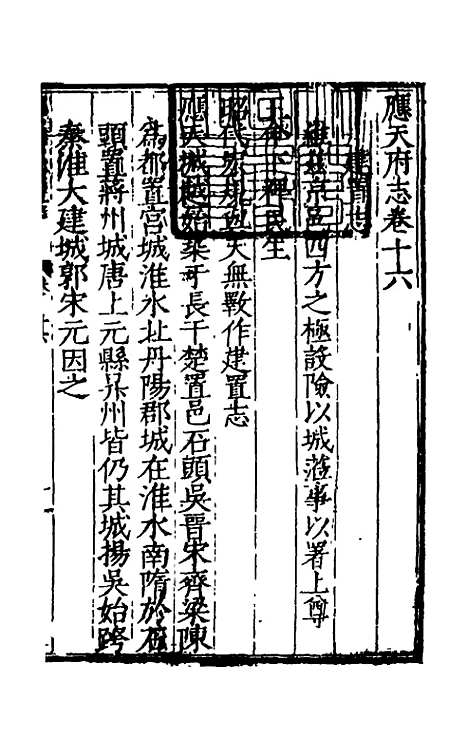 應天府志卷十六
建置志
京邑四方之極設險以城蒞事以署上尊
王命下裨民生
昭代宏規與天無斁作建置志
應天城越始築于長干楚置邑石頭吳晉宋齊梁陳
為都置宮城淮水北丹陽郡城在淮水南隋於石
頭置蔣州城唐上元縣昇州皆仍其城揚吳始跨
秦淮大建城郭宋元因之